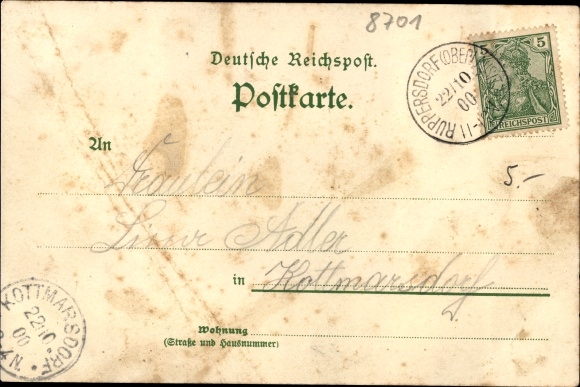 8701
Deutsche Reichspost.
Postkarte.
RUPPERSDORF (OBER
22/10
00
11
5 5
REICHSPOST
5.-
An
Fräulein
Adler
in Kottmarsdorf
Wohnung
(Straße und Hausnummer)
KOTTMARSDORF.
22/10
00
N